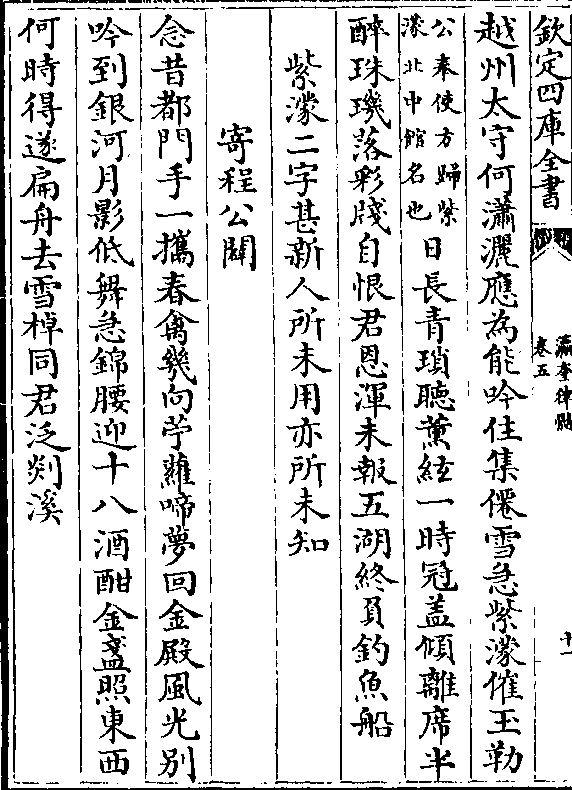 欽定四庫全書
瀛奎律髓
卷五
十一
越州太守何瀟灑應為能吟住集僊雪急紫濛催玉勒
公奉使方歸紫
濛北中館名也
日長青瑣聽薰絃一時冠盖傾離席半
醉珠璣落彩牋自恨君恩渾未報五湖終負釣魚船
紫濛二字甚新人所未用亦所未知
寄程公闢
念昔都門手一攜春禽幾向苧蘿啼夢回金殿風光别
吟到銀河月影低舞急錦腰迎十八酒酣金盞照東西
何時得遂扁舟去雪棹同君泛剡溪